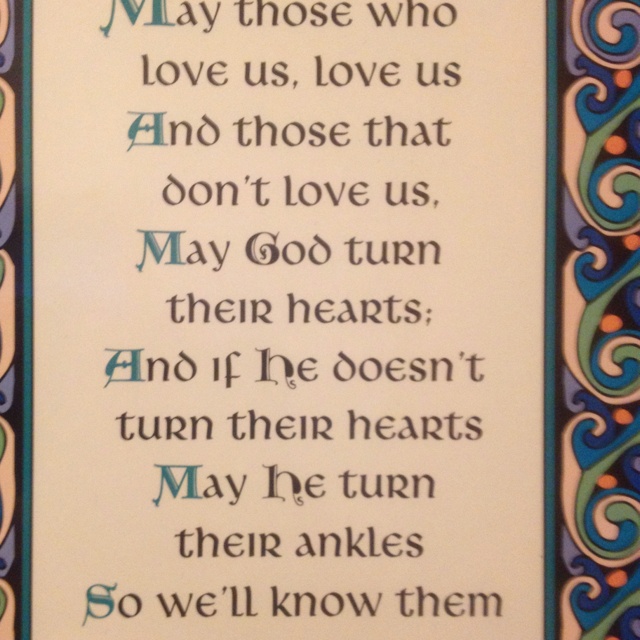 May those who
love us, love us
And those that
don't love us,
May God turn
their hearts;
And if He doesn't
turn their hearts
May He turn
their ankles
So we'll know them